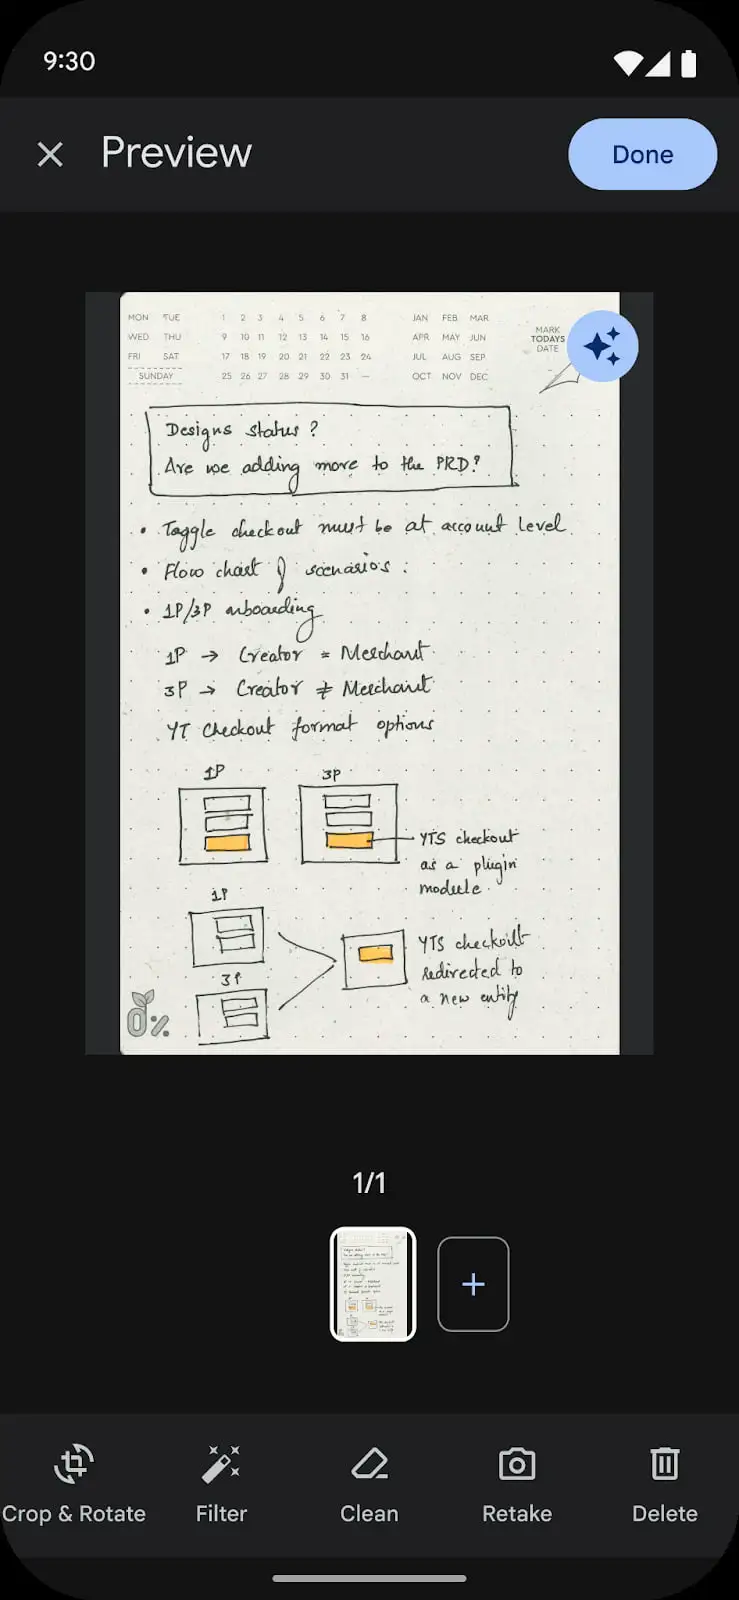 9:30
Preview
Done
MON TUE 1 2 3 4 5 6 7 8 JAN FEB MAR
WED THU 9 10 11 12 13 14 15 16 APR MAY JUN
FRI SAT 17 18 19 20 21 22 23 24 JUL AUG SEP
SUNDAY 25 26 27 28 29 30 31 — OCT NOV DEC
MARK
TODAYS
DATE
Designs status?
Are we adding more to the PRD?
• Toggle checkout must be at account level
• Flow chart of scenarios:
• 1P/3P onboarding
1P → Creator = Merchant
3P → Creator ≠ Merchant
YT Checkout format options
1P 3P
YTS checkout
as a plugin
module.
1P
3P
YTS checkout
redirected to
a new entity
0%
1/1
Crop & Rotate
Filter
Clean
Retake
Delete